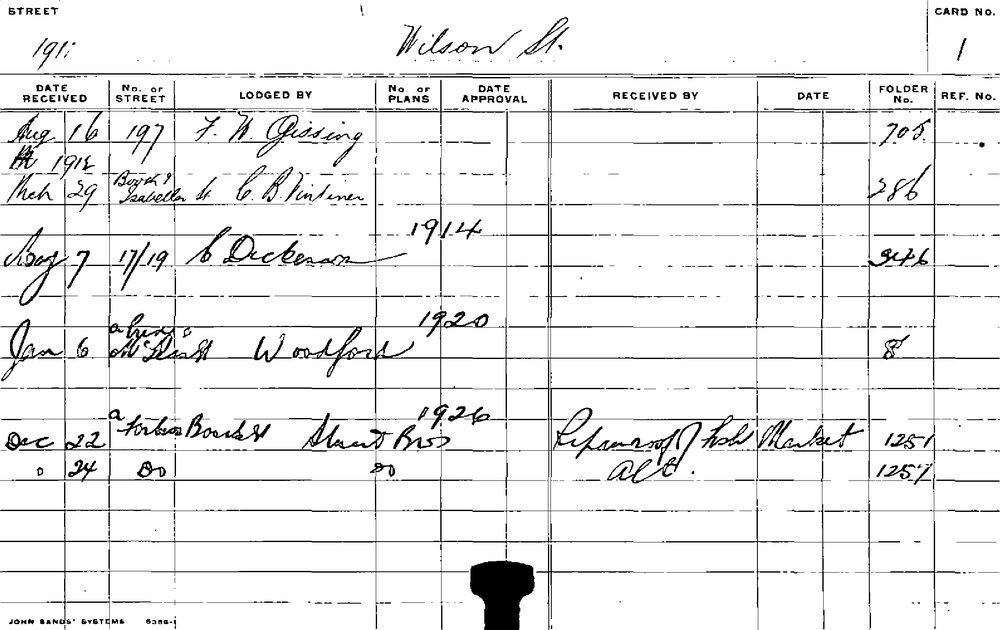 STREET Wilson St. CARD No.
191 1
DATE RECEIVED No. OF STREET LODGED BY No. OF PLANS DATE APPROVAL RECEIVED BY DATE FOLDER No. REF. No.
Aug 16 197 F. W. Gissing 705
1912
Mch 29 Booth & Isabella St C. B. Vintiner 286
1914
Aug 7 17/19 C Dickenson 346
1920
Jan 6 St Woodford 8
1926
Dec 22 Forbes Bourke St Stuart Bros Fish Market 1251
" 24 Do Do 1257
JOHN SANDS' SYSTEMS